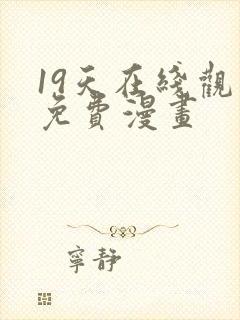 19天在綫觀
免費漫畫
寧靜